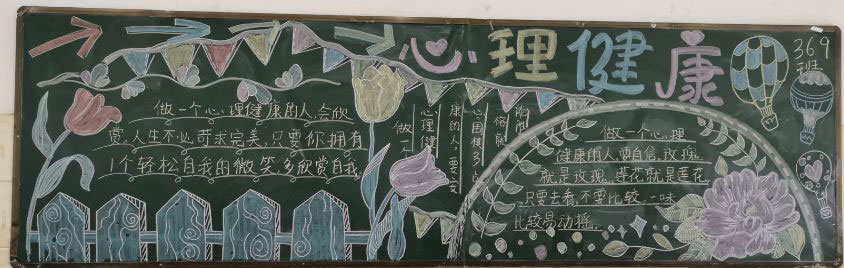 心理健康
369
班
做一个心理健康的人,会欣
赏,人生不必苛求完美,只要你拥有
1个轻松自我的微笑,多欣赏自我
做一
心理健
康的人,要
做一个心理
健康的人要自信,玫瑰
就是玫瑰,莲花就是莲花
只要去看,不要比较,一味
比较易动摇.